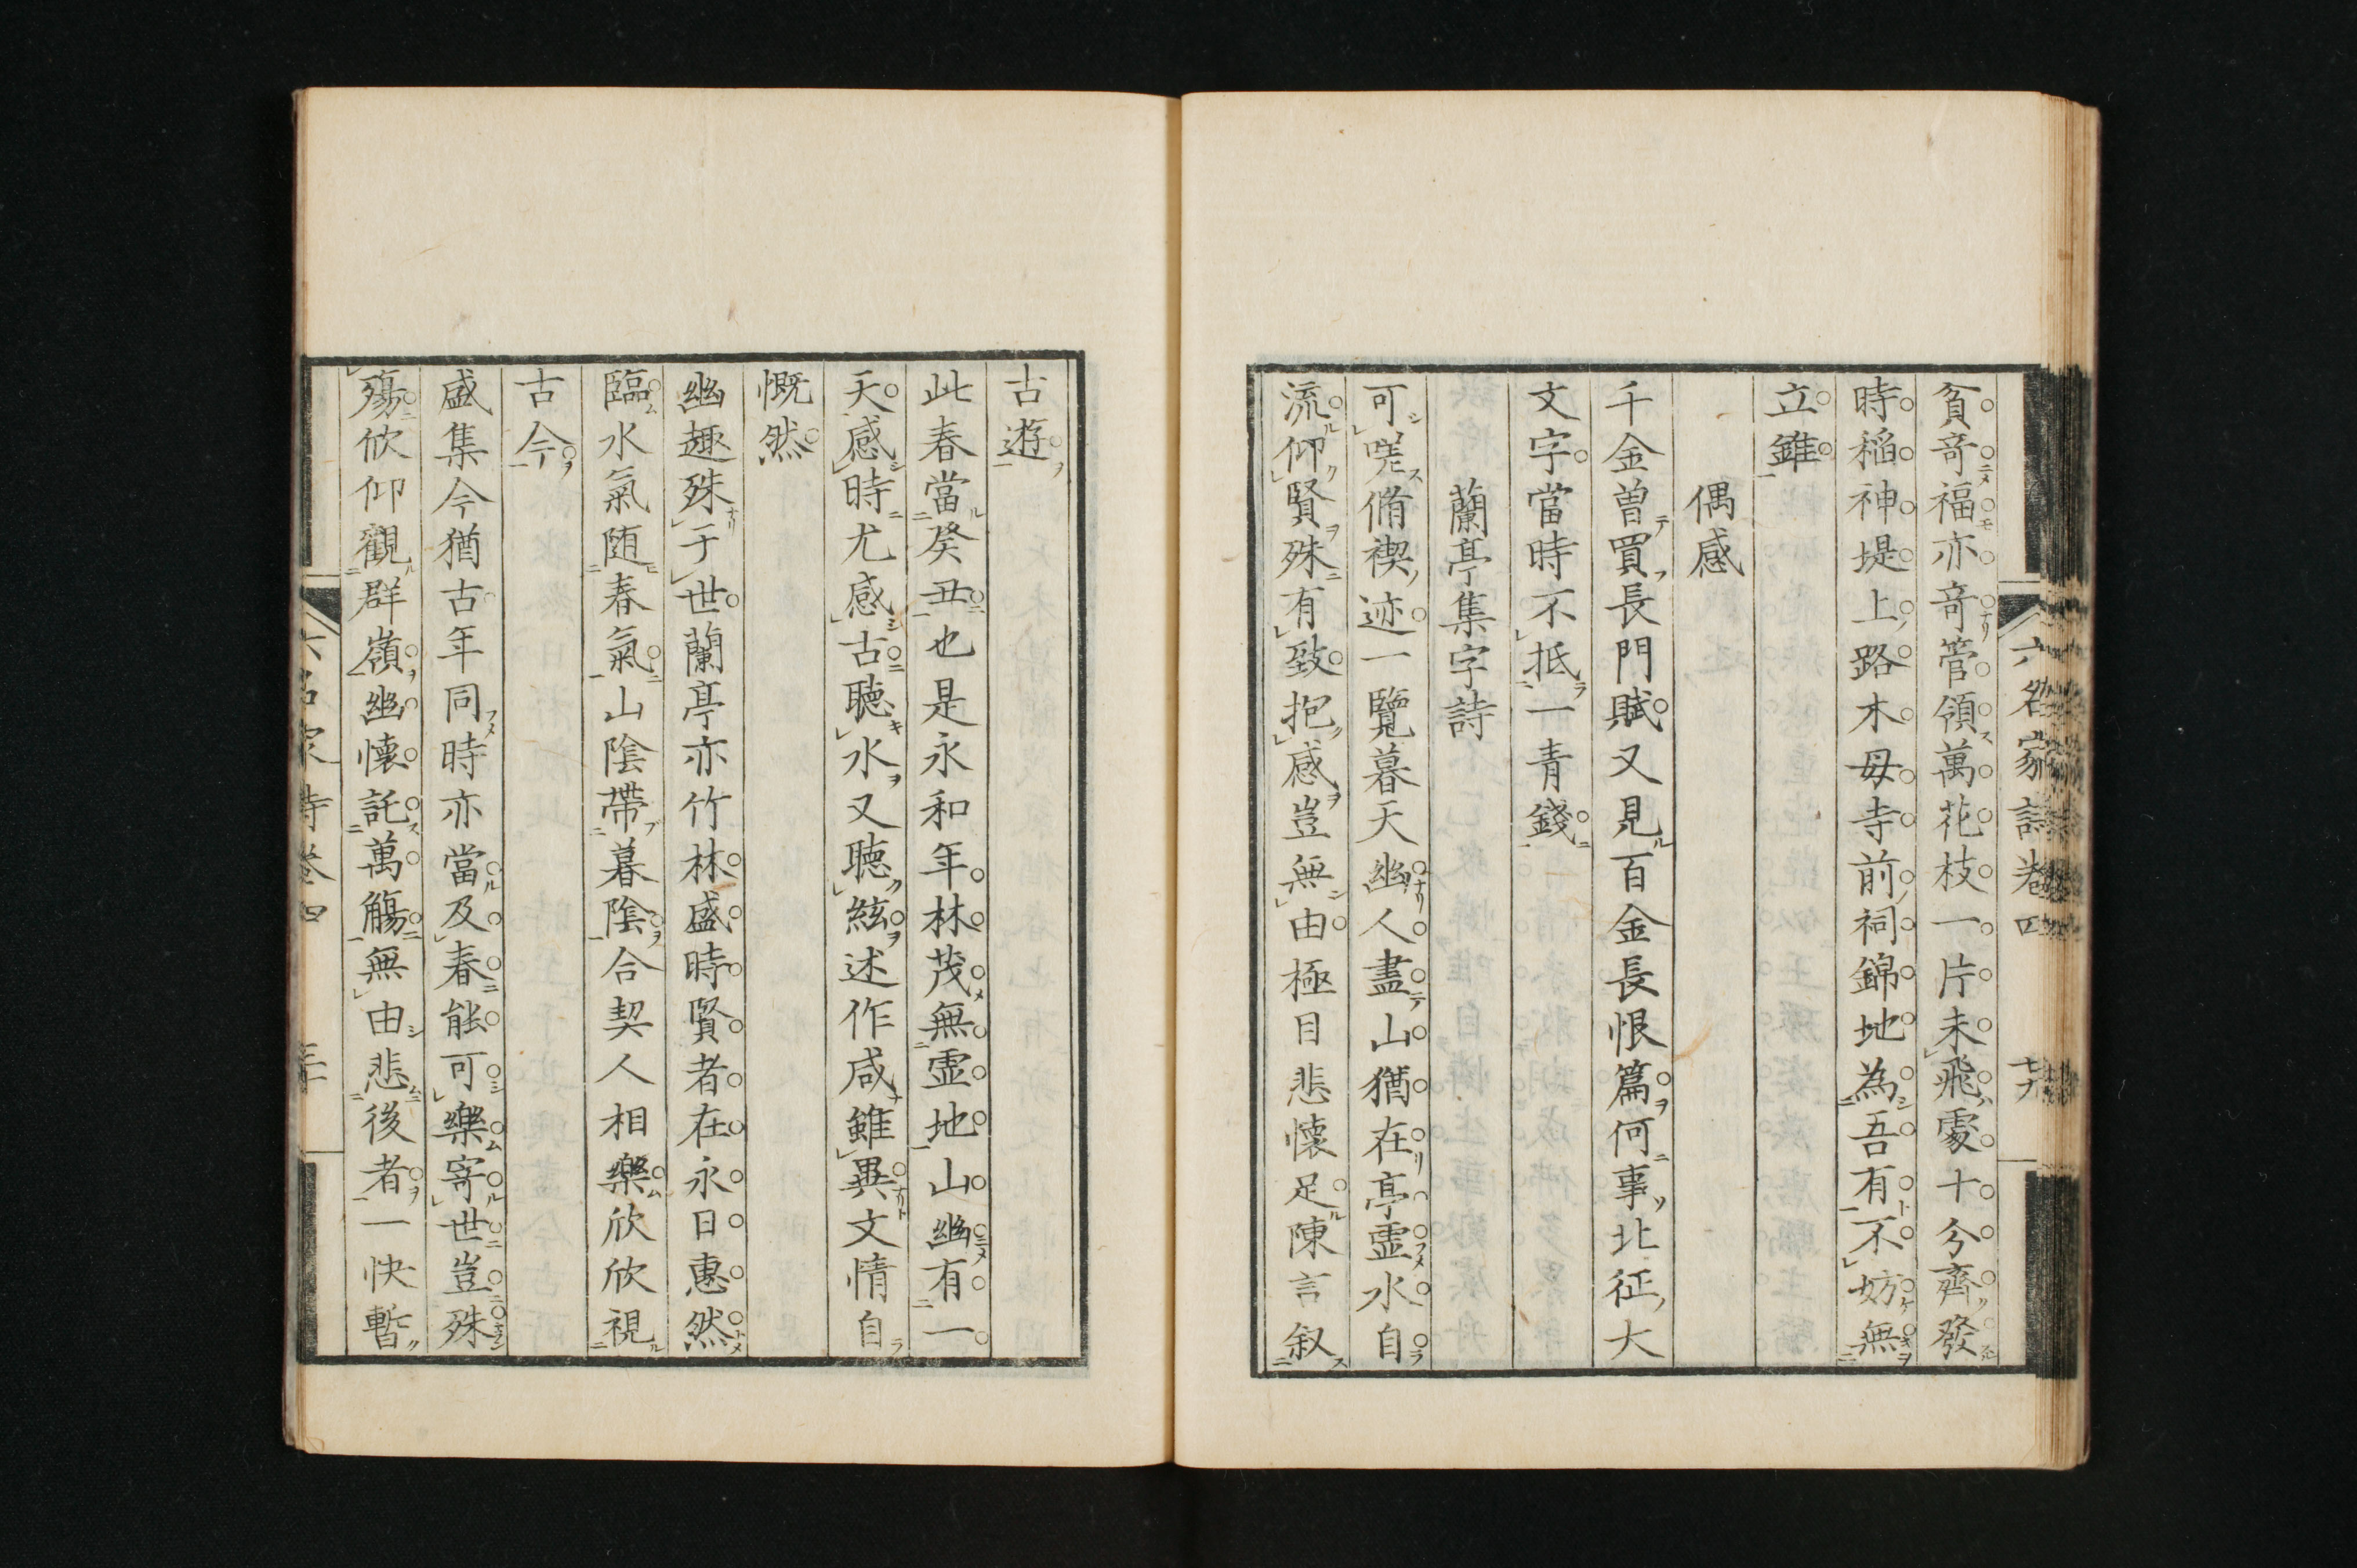 貧竒福亦竒管領萬花枝一片未飛處十分齊發
時稲神堤上路木母寺前祠錦地為吾有不妨無
立錐
偶感
千金曽買長門賦又見百金長恨篇何事北征大
文字當時不抵一青錢
蘭亭集字詩
可嗟脩禊迹一覽暮天幽人盡山猶在亭虛水自
流仰賢殊有致抱感豈無由極目悲懷足陳言叙
古遊
此春當癸丑也是永和年林茂無虛地山幽有一
天感時尤感古聽水又聽絃述作咸雖異文情自
慨然
幽趣殊于世蘭亭亦竹林盛時賢者在永日惠然
臨水氣随春氣山陰帶暮陰合契人相樂欣欣視
古今
盛集今猶古年同時亦當及春能可樂寄世豈殊
殤俯仰觀群嶺幽懷託萬觴無由悲後者一快暫
六名家詩卷四